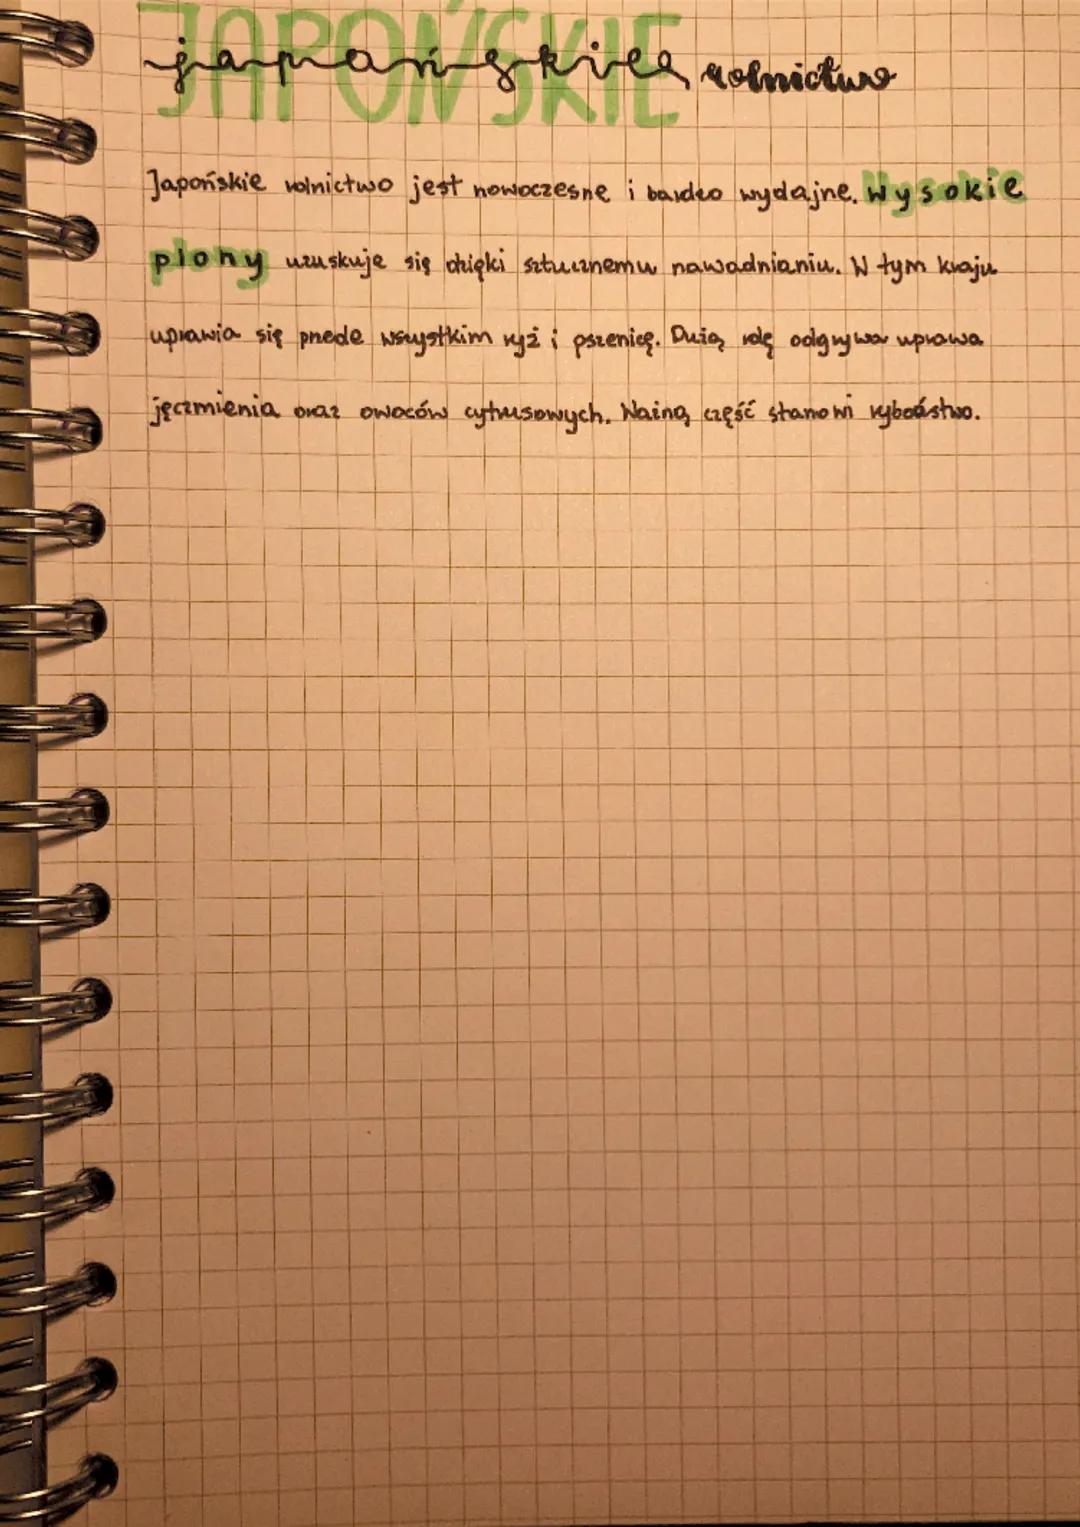 JAPOŃSKIE
japońskie rolnictwo
Japońskie rolnictwo jest nowoczesne i bardzo wydajne. Wysokie
plony uzuskuje się dzięki sztucznemu nawadnianiu. W tym kraju
uprawia się przede wszystkim ryż i pszenicę. Dużą rolę odgrywa uprawa
jęczmienia oraz owoców cytrusowych. Ważną część stanowi rybołóstwo.